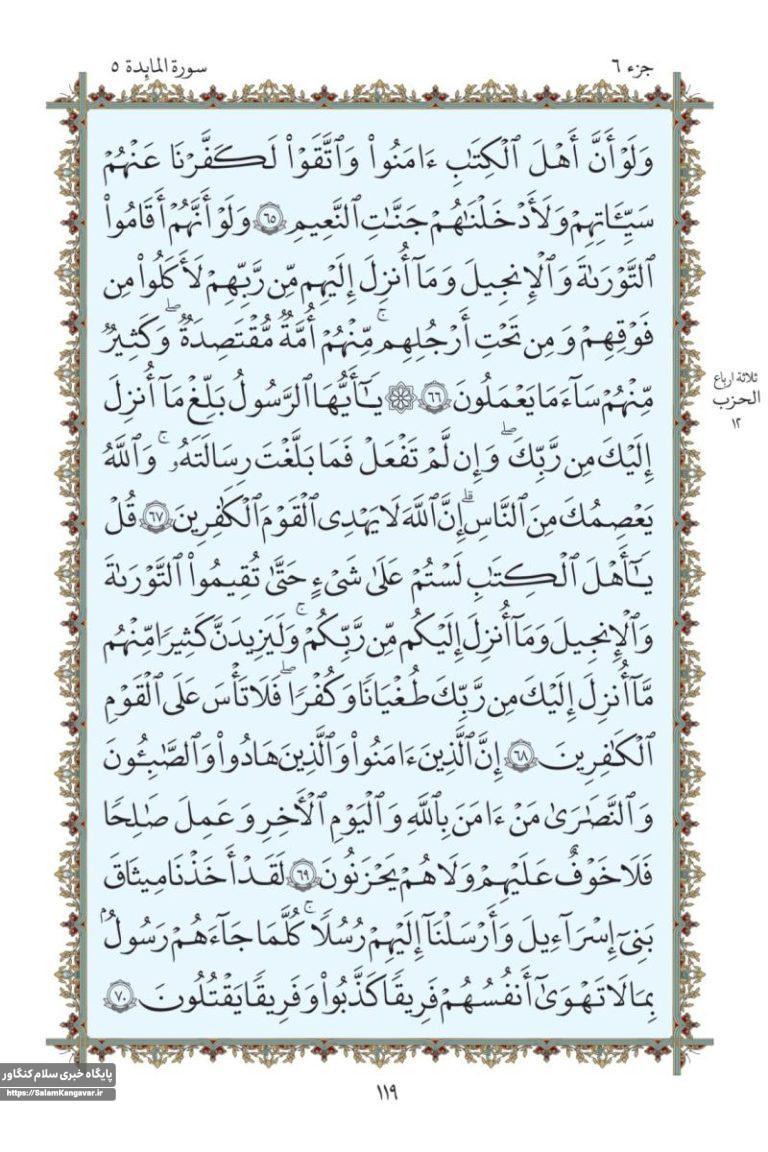 جزء ٦
سورة المایدة ٥
وَلَوْ أَنَّ أَهْلَ ٱلْكِتَٰبِ ءَامَنُوا۟ وَٱتَّقَوْا۟ لَكَفَّرْنَا عَنْهُمْ
سَيِّـَٔاتِهِمْ وَلَأَدْخَلْنَٰهُمْ جَنَّٰتِ ٱلنَّعِيمِ ٦٥ وَلَوْ أَنَّهُمْ أَقَامُوا۟
ٱلتَّوْرَىٰةَ وَٱلْإِنجِيلَ وَمَآ أُنزِلَ إِلَيْهِم مِّن رَّبِّهِمْ لَأَكَلُوا۟ مِن
فَوْقِهِمْ وَمِن تَحْتِ أَرْجُلِهِم ۚ مِّنْهُمْ أُمَّةٌ مُّقْتَصِدَةٌ ۖ وَكَثِيرٌ
مِّنْهُمْ سَآءَ مَا يَعْمَلُونَ ٦٦ ۞ يَٰٓأَيُّهَا ٱلرَّسُولُ بَلِّغْ مَآ أُنزِلَ
إِلَيْكَ مِن رَّبِّكَ ۖ وَإِن لَّمْ تَفْعَلْ فَمَا بَلَّغْتَ رِسَالَتَهُۥ ۚ وَٱللَّهُ
يَعْصِمُكَ مِنَ ٱلنَّاسِ ۗ إِنَّ ٱللَّهَ لَا يَهْدِى ٱلْقَوْمَ ٱلْكَٰفِرِينَ ٦٧ قُلْ
يَٰٓأَهْلَ ٱلْكِتَٰبِ لَسْتُمْ عَلَىٰ شَىْءٍ حَتَّىٰ تُقِيمُوا۟ ٱلتَّوْرَىٰةَ
وَٱلْإِنجِيلَ وَمَآ أُنزِلَ إِلَيْكُم مِّن رَّبِّكُمْ ۚ وَلَيَزِيدَنَّ كَثِيرًا مِّنْهُم
مَّآ أُنزِلَ إِلَيْكَ مِن رَّبِّكَ طُغْيَٰنًا وَكُفْرًا ۖ فَلَا تَأْسَ عَلَى ٱلْقَوْمِ
ٱلْكَٰفِرِينَ ٦٨ إِنَّ ٱلَّذِينَ ءَامَنُوا۟ وَٱلَّذِينَ هَادُوا۟ وَٱلصَّٰبِـُٔونَ
وَٱلنَّصَٰرَىٰ مَنْ ءَامَنَ بِٱللَّهِ وَٱلْيَوْمِ ٱلْـَٔاخِرِ وَعَمِلَ صَٰلِحًا
فَلَا خَوْفٌ عَلَيْهِمْ وَلَا هُمْ يَحْزَنُونَ ٦٩ لَقَدْ أَخَذْنَا مِيثَٰقَ
بَنِىٓ إِسْرَٰٓءِيلَ وَأَرْسَلْنَآ إِلَيْهِمْ رُسُلًا ۖ كُلَّمَا جَآءَهُمْ رَسُولٌۢ
بِمَا لَا تَهْوَىٰٓ أَنفُسُهُمْ فَرِيقًا كَذَّبُوا۟ وَفَرِيقًا يَقْتُلُونَ ٧٠
ثلاثة ارباع
الحزب
١٢
١١٩
پایگاه خبری سلام کنگاور
https://SalamKangavar.ir